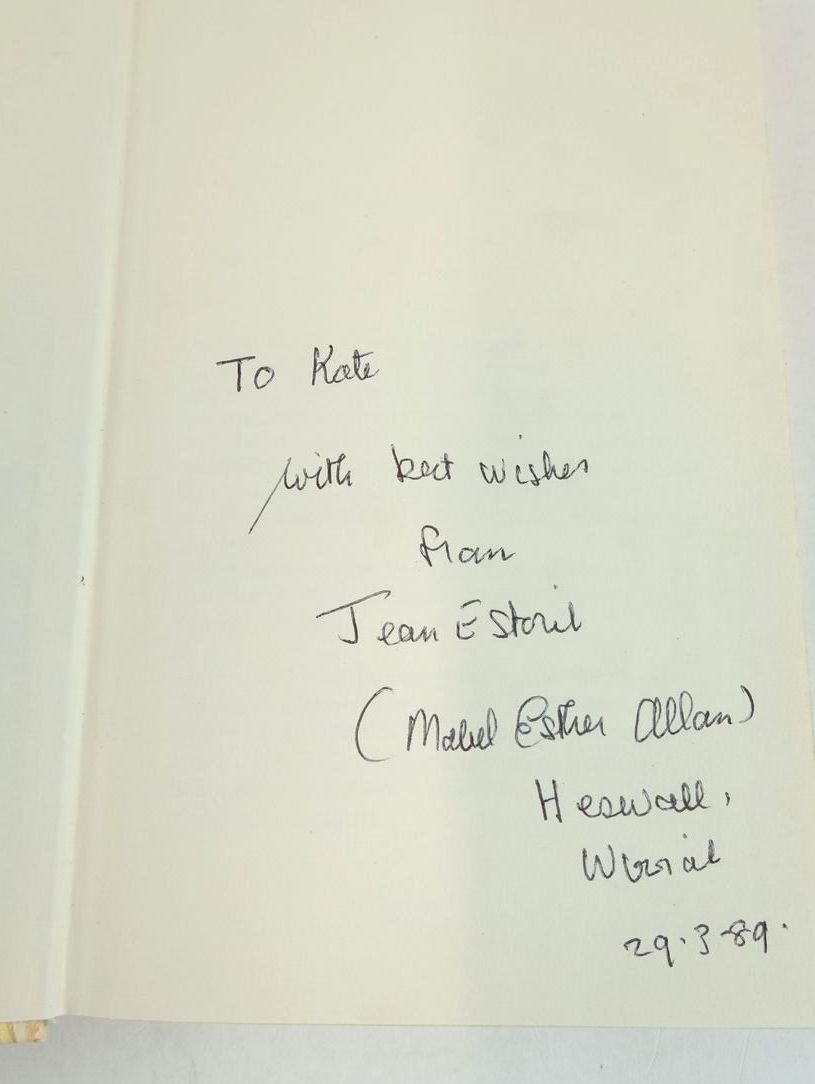 To Kate
with best wishes
from
Jean Estoril
(Mabel Esther Allan)
Heswall,
Wirral
29.3.89.